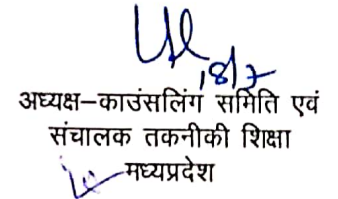 18/7
अध्यक्ष–काउंसलिंग समिति एवं
संचालक तकनीकी शिक्षा
मध्यप्रदेश